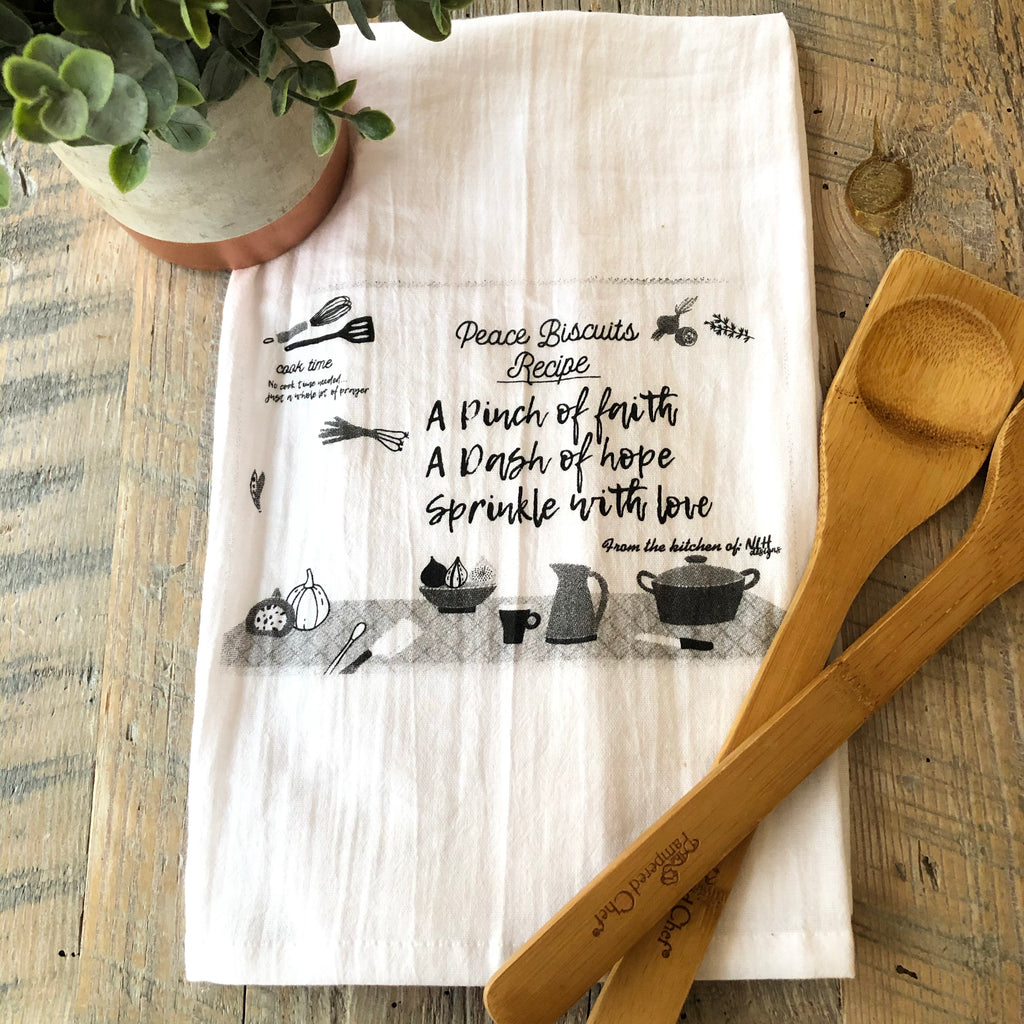 Peace Biscuits
Recipe
cook time
No cook time needed...
Just a whole lot of prayer
A Pinch of faith
A Dash of hope
Sprinkle with love
From the kitchen of: NLH
designs
Pampered Chef®
d Chef®